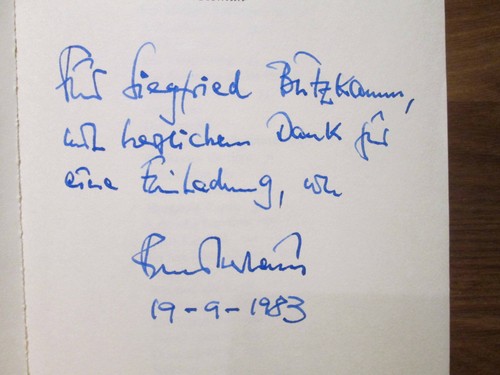 Für Siegfried Butzkamm,
mit herzlichem Dank für
eine Einladung,
19-9-1983